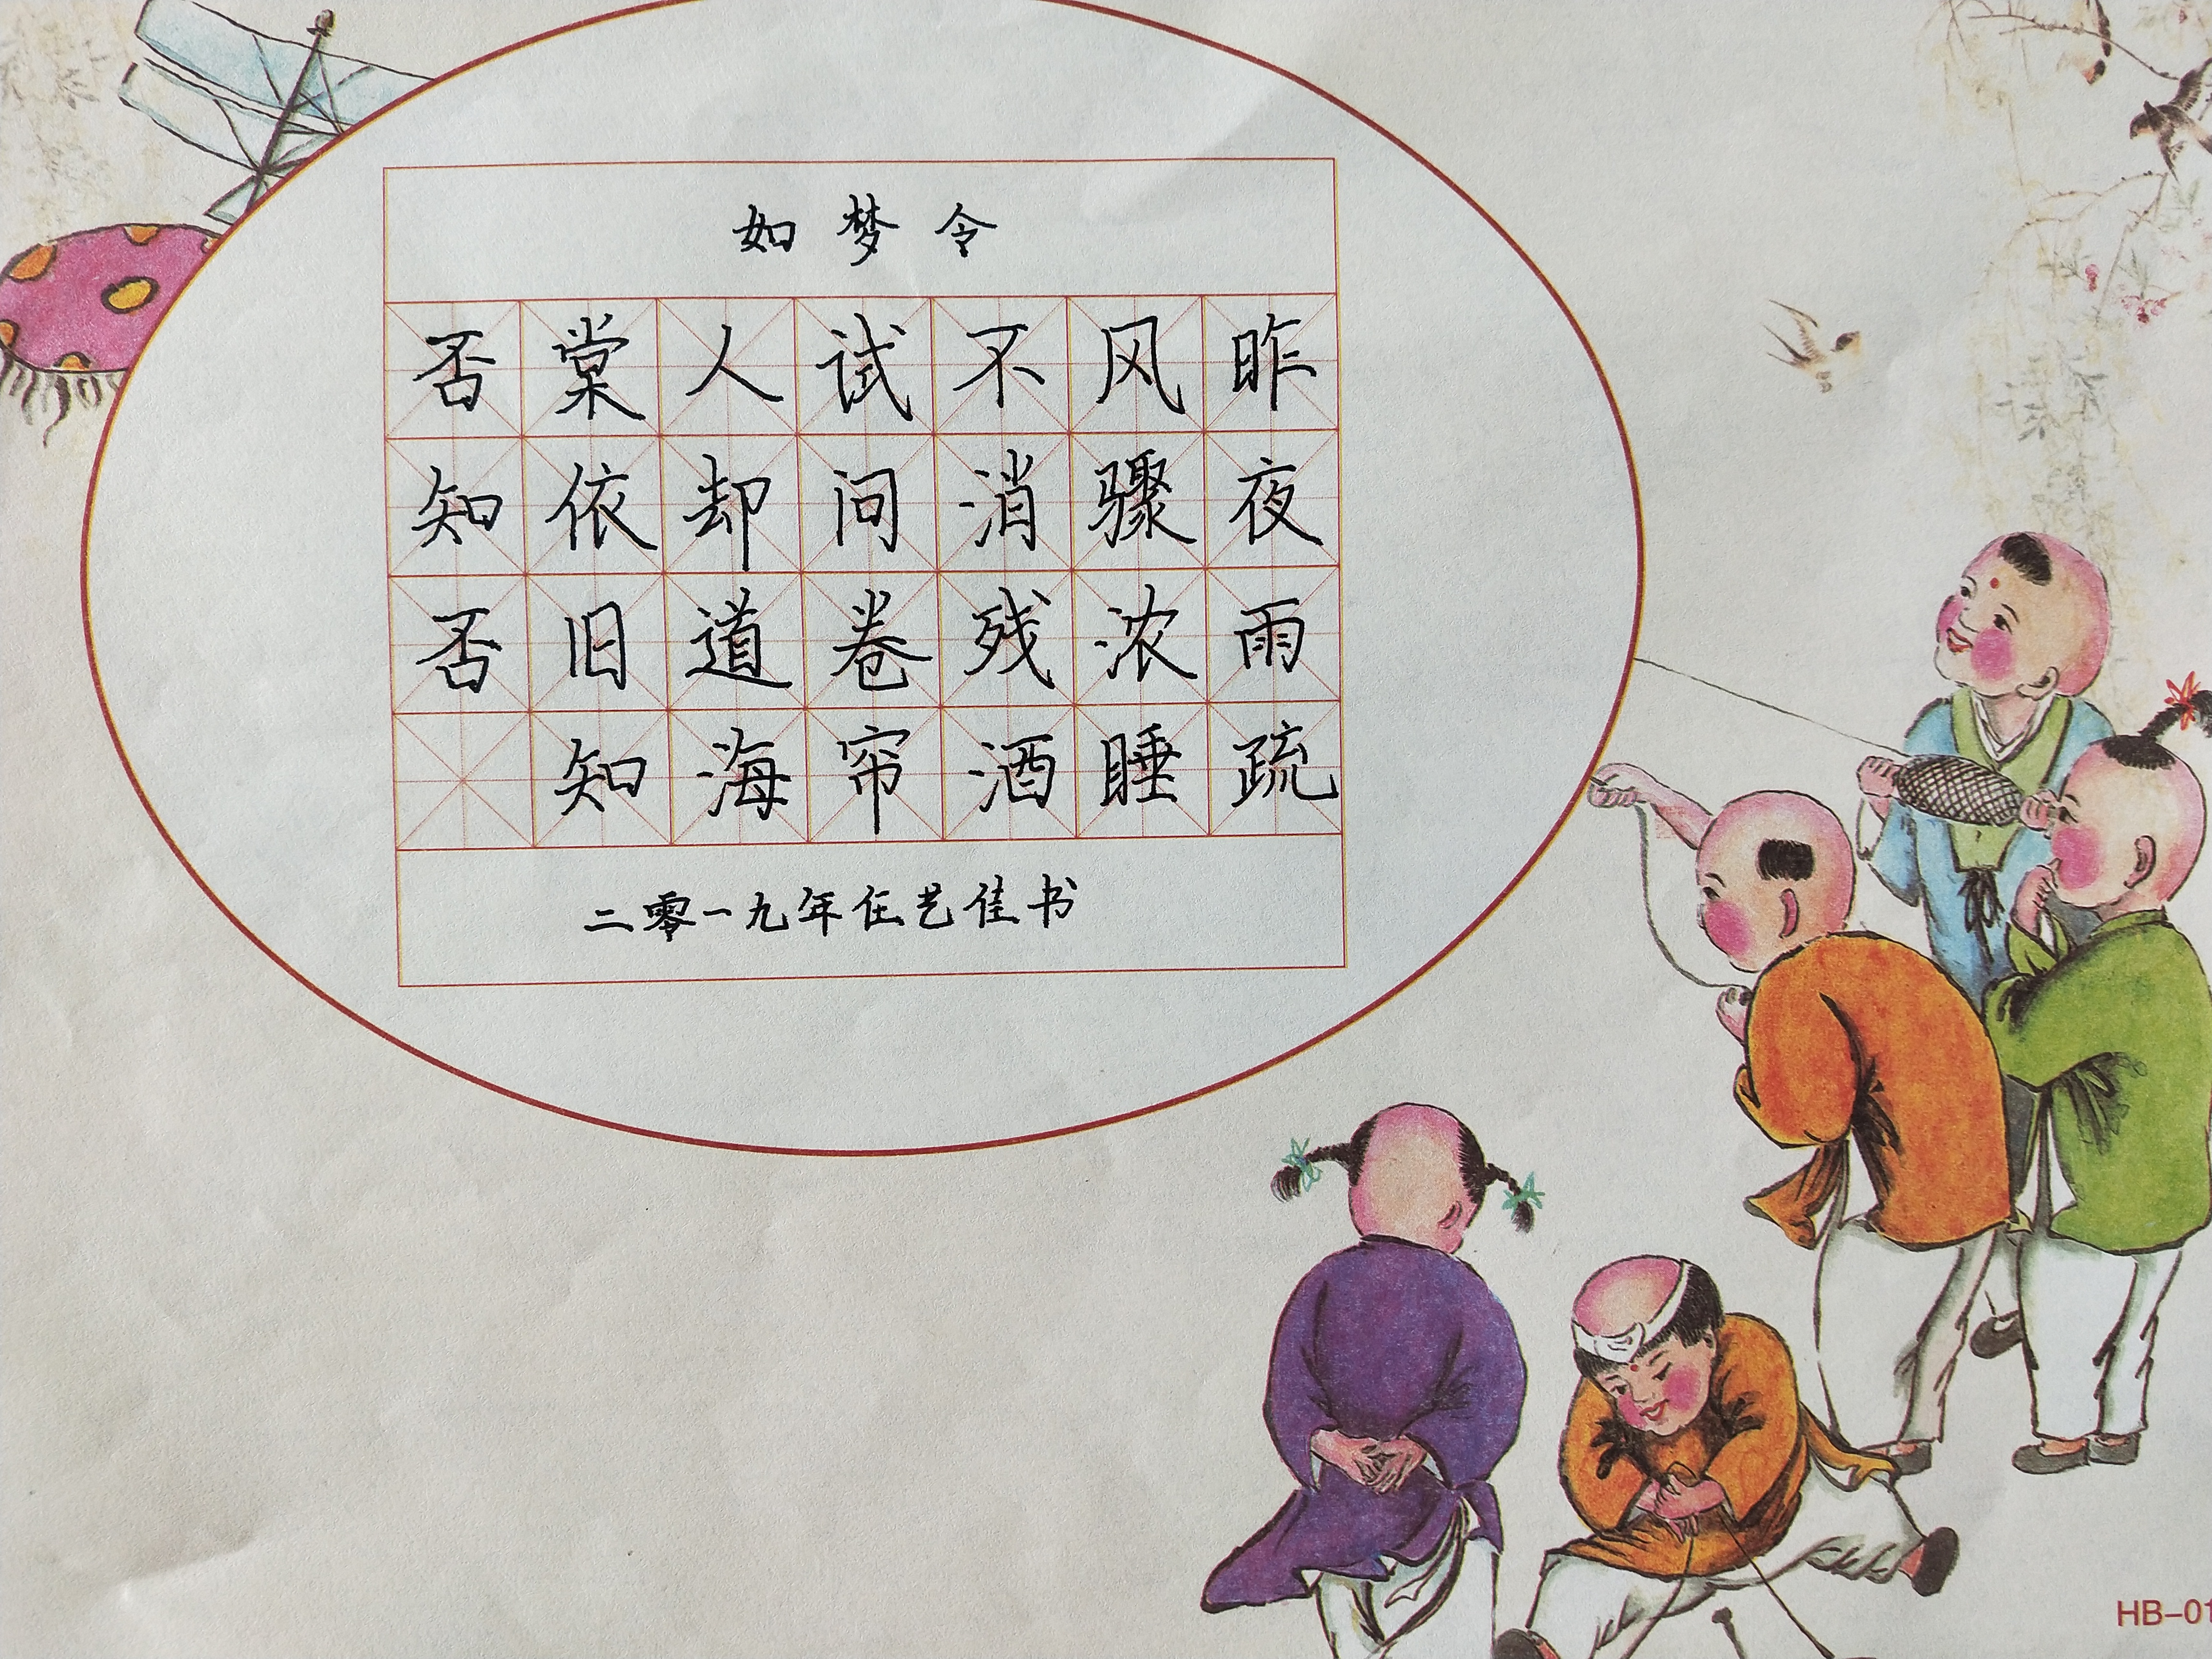 如梦令
昨夜雨疏
风骤浓睡
不消残酒
试问卷帘
人却道海
棠依旧知
否知否
二零一九年任艺佳书
HB-01